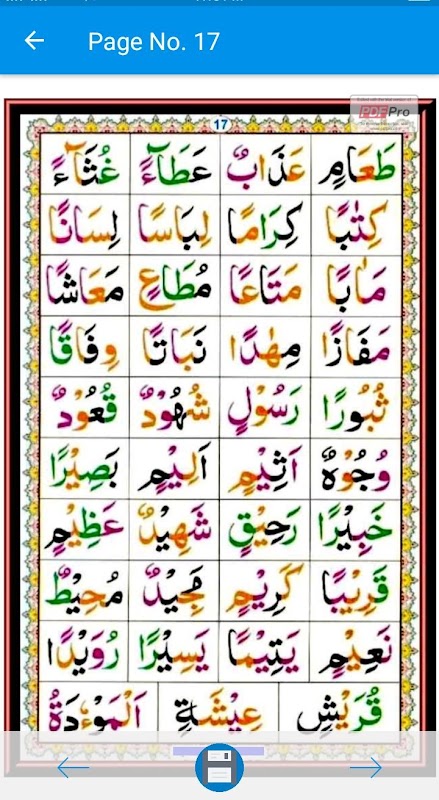 Page No. 17
PDF Pro
17
طَعَامٍ عَذَابٌ عَطَآءً غُثَآءً
كِتٰبًا كِرَامًا لِبَاسًا لِسَانًا
مَاٰبًا مَتَاعًا مُطَاعٍ مَعَاشًا
مَفَازًا مِهٰدًا نَبَاتًا وِفَاقًا
ثُبُورًا رَسُوْلٍ شُهُوْدٌ قُعُوْدٌ
وُجُوْهٌ اَثِيْمٍ اَلِيْمٍ بَصِيْرًا
خَبِيْرًا رَحِيْقٍ شَهِيْدٌ عَظِيْمٍ
قَرِيْبًا كَرِيْمٍ مَجِيْدٌ مُحِيْطٌ
نَعِيْمٍ يَتِيْمًا يَسِيْرًا رُوَيْدًا
قُرَيْشٍ عِيْشَةٍ اَلْمَوْءٗدَةُ